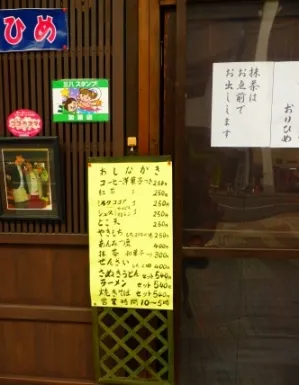 ひめ
スタンプ
加盟店
抹茶は
お点前で
お出しします
おりひめ
おしながき
コーヒー 洋菓子つき 250円
紅茶 〃 250円
ミルクココア 〃 250円
ジュース 〃 250円
ところ天 250円
やきもち 250円
あんみつ 400円
抹茶 和菓子つき 300円
ぜんざい 400円
さぬきうどん セット 540円
ラーメン セット 540円
焼きそば セット 540円
営業時間 10〜5時